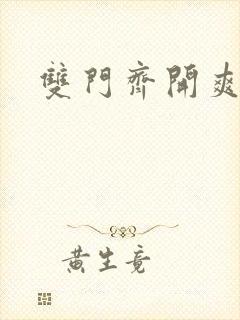 雙門齊開爽
黄生竟